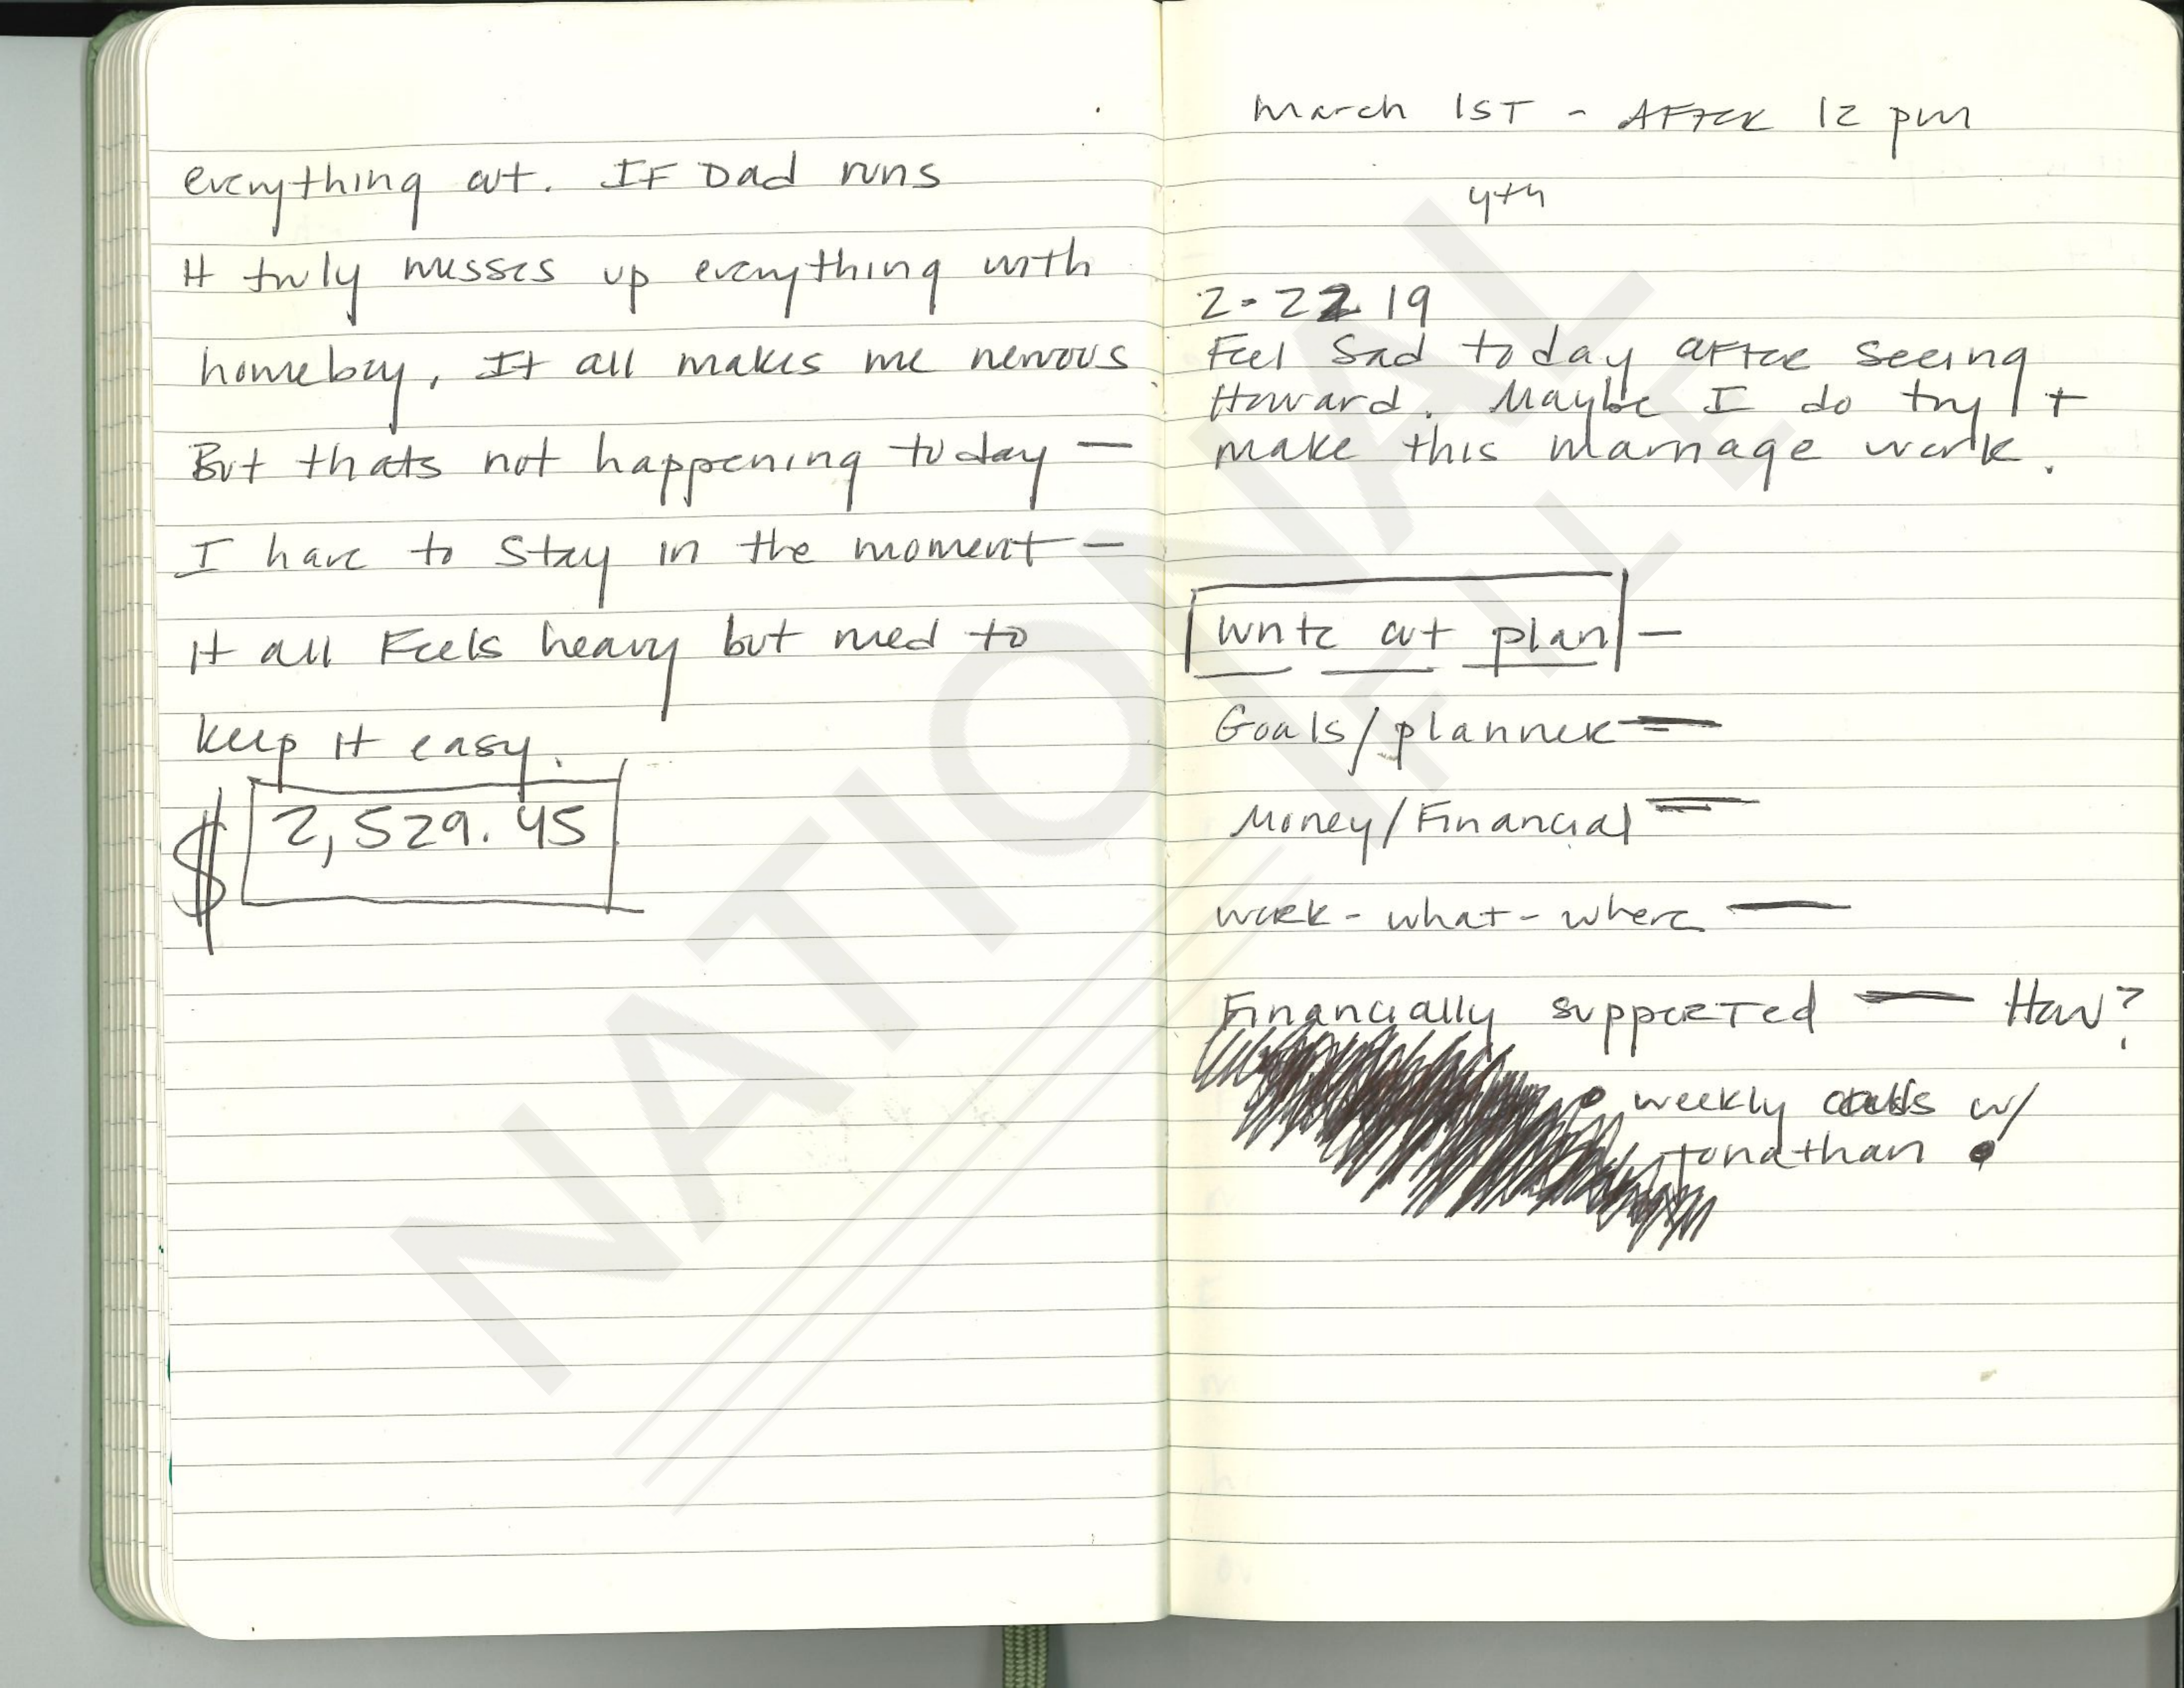 everything out. IF Dad runs
It truly messes up everything with
homebuy, It all makes me nervous
But thats not happening today —
I have to stay in the moment —
It all Feels heavy but need to
keep it easy.
$ 2,529.45
March 1ST - AFTER 12 pm
4th
2-22 19
Feel Sad today aFTER seeing
Howard. Maybe I do try +
make this marriage work.
Write out plan —
Goals/planner —
Money/Financial —
work - what - where —
Financially suppORTed — How?
• weekly calls w/
Jonathan •
NATIONAL
FILE